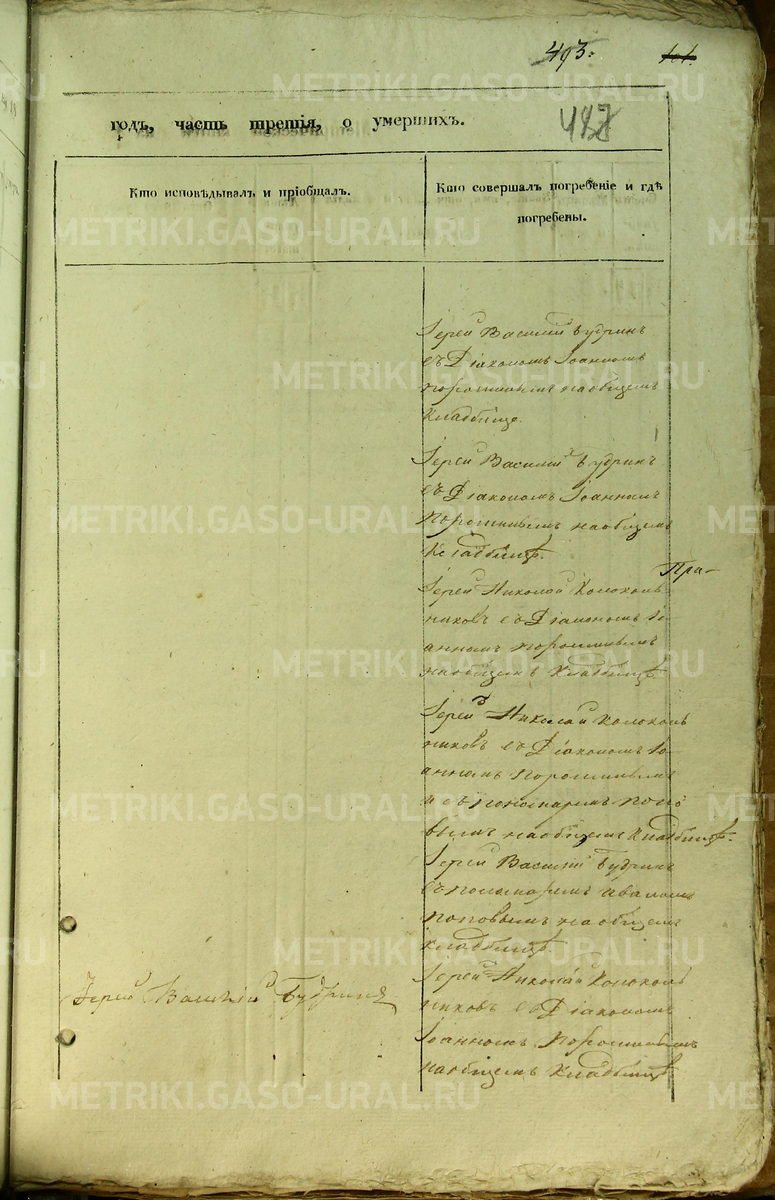 493.
101.
годъ, часть третія, о умершихъ.
Кто исповѣдывалъ и пріобщалъ.
Кто совершалъ погребеніе и гдѣ
погребены.
Іерей Василій Будрин
съ Діакономъ Іоанномъ
порошинымъ на общемъ
кладбище.
Іерей Василий Будринъ
съ Діакономъ Іоанномъ
порошинымъ на общемъ
Кладбищѣ.
Пра-
Іерей Николай Колоколь
никовъ съ Діакономъ Іо
анномъ порошинымъ
на общемъ Кладбищѣ
Іерей Николай Колоколь
никовъ съ Діакономъ Іо
анномъ порошинымъ
и съ пономаремъ попо
вымъ на общемъ Кладбищѣ.
Іерей Василій Будринъ
съ пономаремъ иваномъ
поповымъ на общемъ
кладбищѣ
Іерей Василий Будринъ
Іерей Николай Колоколь
никовъ съ Діакономъ
Іоанномъ порошинымъ
на общемъ Кладбищѣ
METRIKI.GASO-URAL.RU